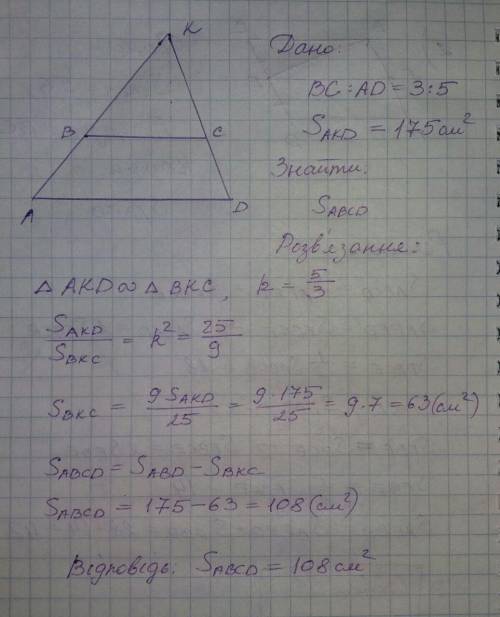 K
Дано:
BC:AD = 3:5
B C
S_AKD = 175 см²
Знайти:
A D
S_ABCD
Розв'язання:
△ AKD ∾ △ BKC, k = 5/3
S_AKD/S_BKC = k² = 25/9
S_BKC = 9 S_AKD/25 = 9·175/25 = 9·7 = 63 (см²)
S_ABCD = S_ABD − S_BKC
S_ABCD = 175 − 63 = 108 (см²)
Відповідь: S_ABCD = 108 см²